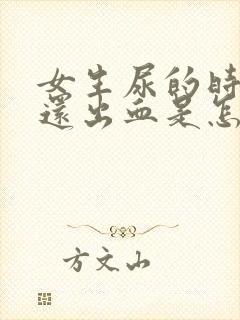 女生尿的时
还出血是怎
方文山